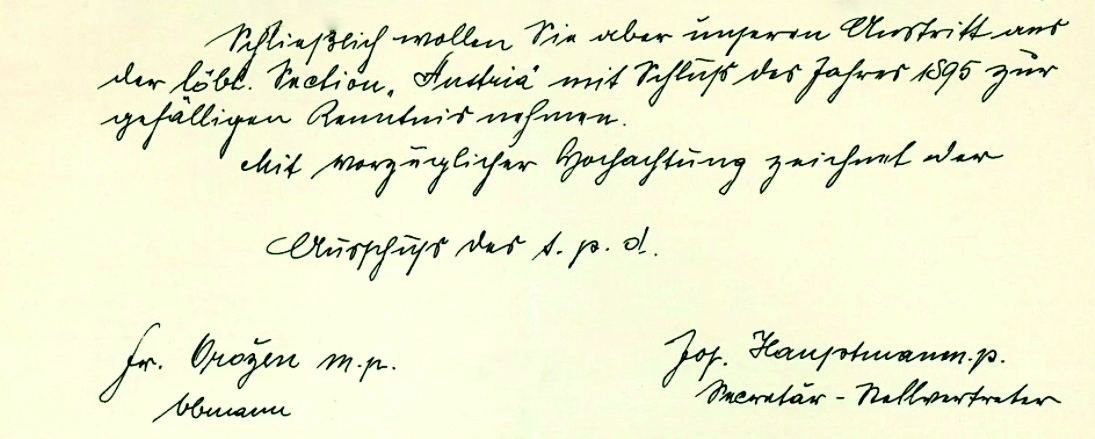 Schließlich wollen Sie aber unseren Austritt aus
der löbl. Section „Austria“ mit Schluß des Jahres 1895 zur
gefälligen Kenntnis nehmen.
Mit vorzüglicher Hochachtung zeichnet der
Ausschuß des s. p. d.
Fr. Orožen m.p.
Obmann
Jos. Hauptmann m.p.
Secretär-Stellvertreter